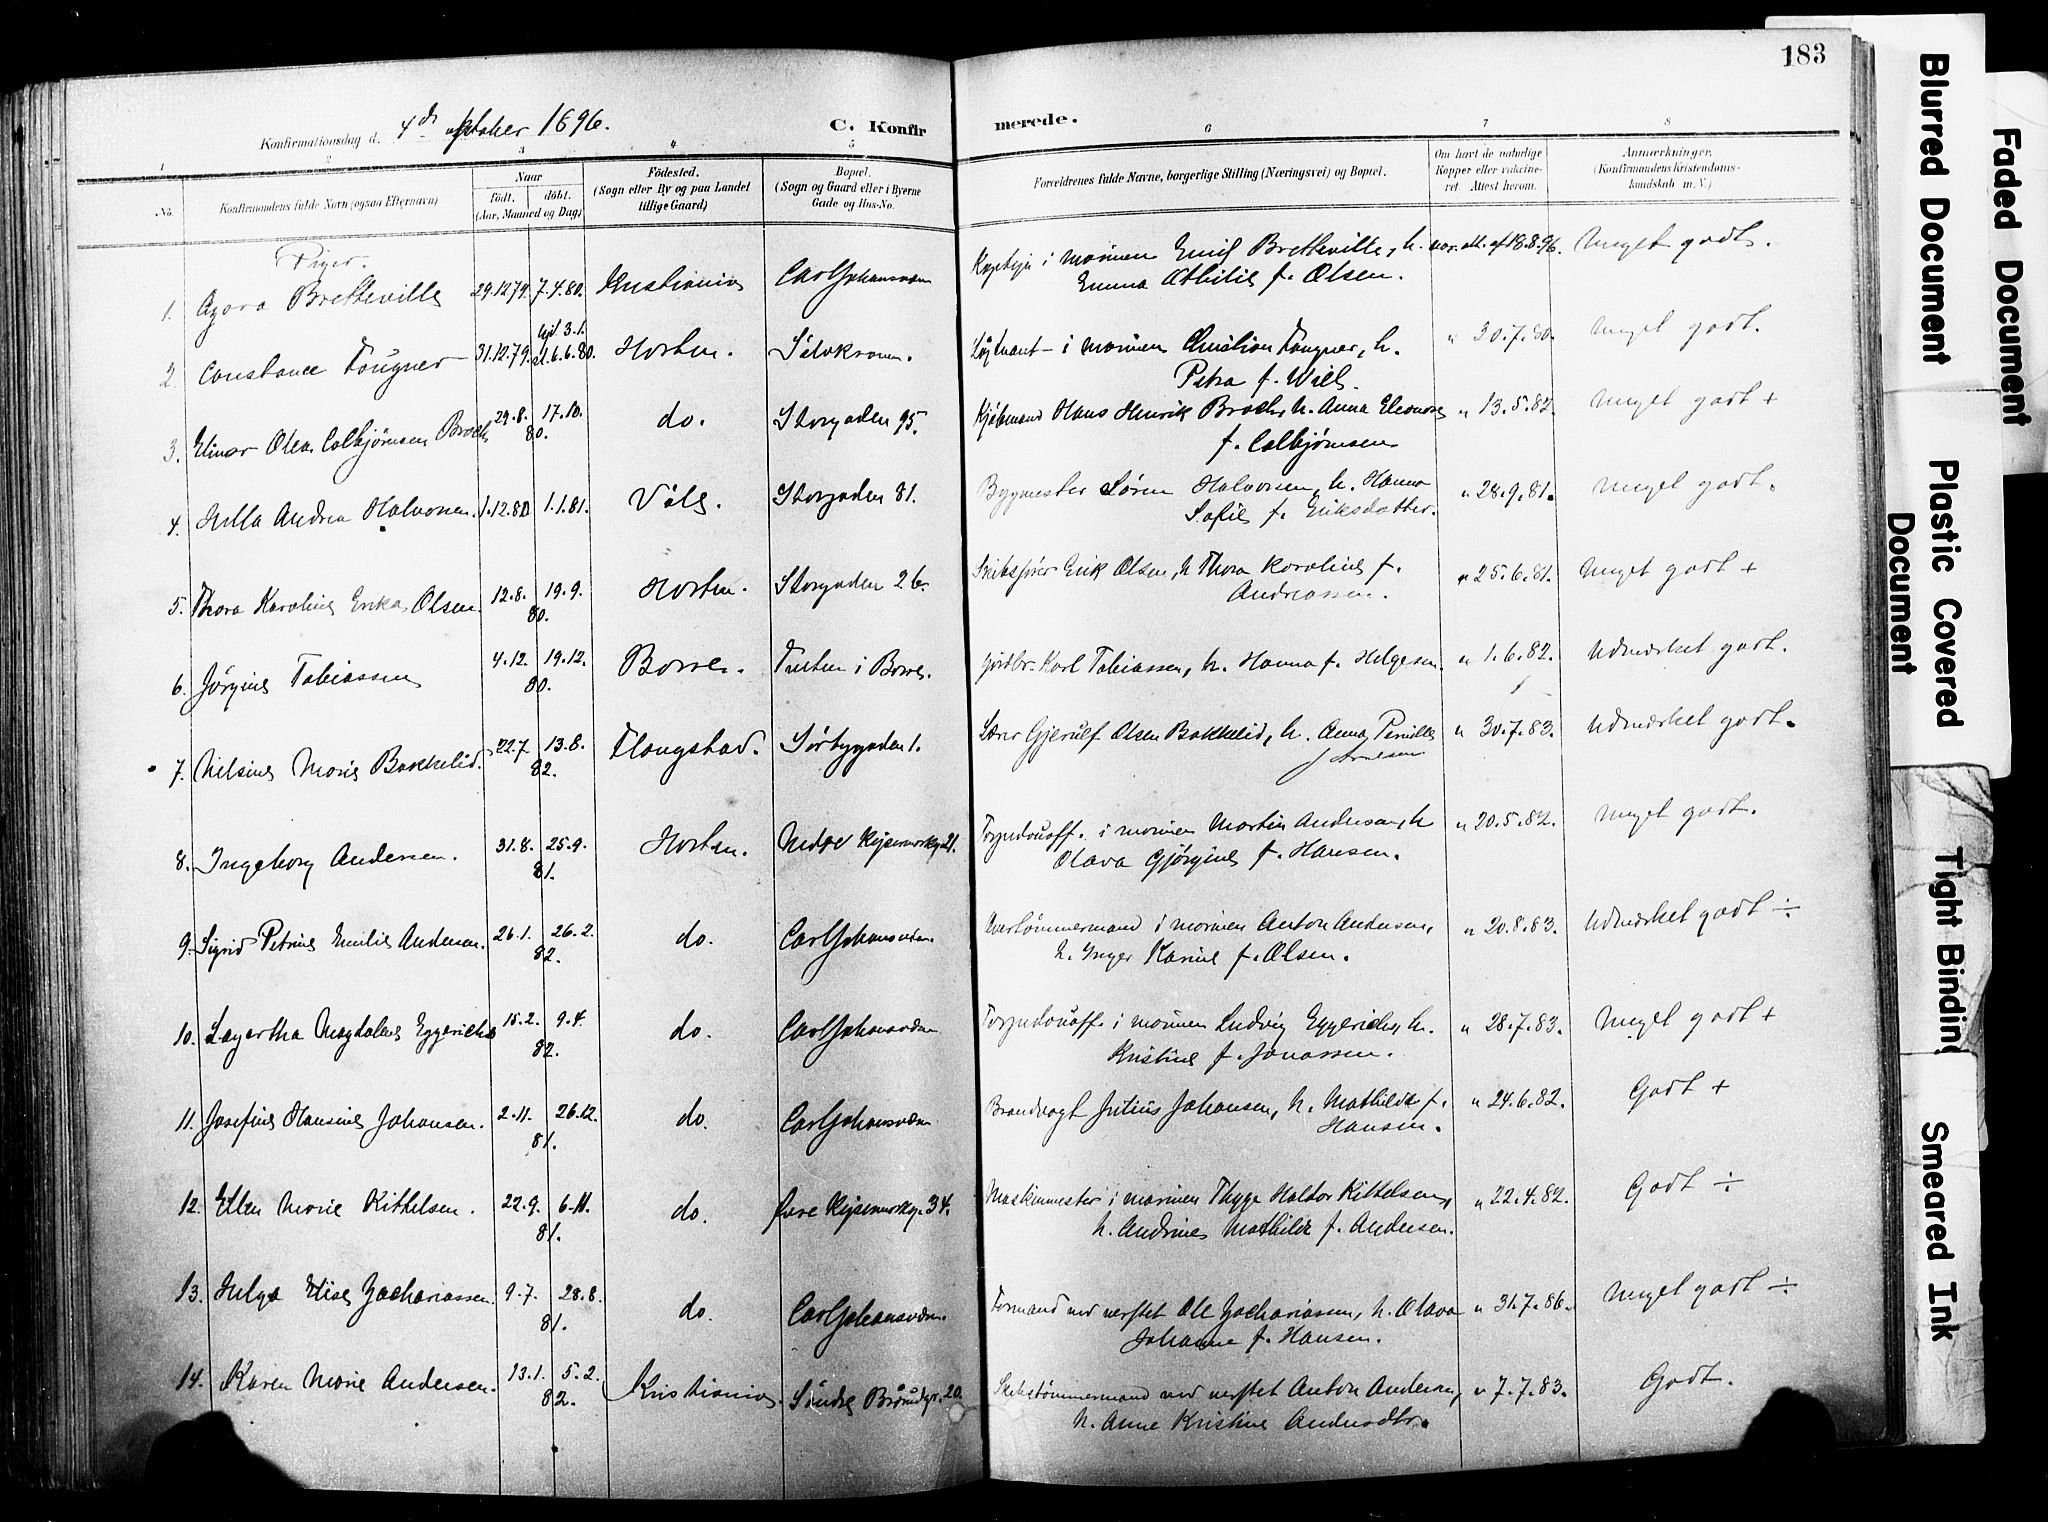 183
Konfirmationsdag d. 4de oktober 1896.
C. Konfirmerede.
1 2 3 4 5 6 7 8
No. Konfirmandens fulde Navn (ogsaa Efternavn)
Naar født. døbt. (Aar, Maaned og Dag)
Fødested. (Sogn eller By og paa Landet tillige Gaard)
Bopæl. (Sogn og Gaard eller i Byerne Gade og Hus-No.
Forældrenes fulde Navne, borgerlige Stilling (Næringsvei) og Bopæl.
Om havt de naturlige Kopper eller vaksineret. Attest herom.
Anmærkninger. (Konfirmandens Kristendomskundskab m. V.)
Piger.
1. Agora Bretteville 29.12.79. 7.4.80. Kristiania Carljohansværn Kaptein i marinen Emil Bretteville, h. vac. att. af 18.8.96. Meget godt.
Emma Athilie f. Olsen.
2. Constance Fougner 31.12.79. 3.1. 6.6.80. Horten. Løjtnant i marinen Christian Fougner, h. " 30.7.80. Meget godt.
Petra f. Wiel.
3. Elinor Olea Colbjørnsen Broch 29.8. 17.10. 80. do. Storgaden 95. Kjøbmand Hans Henrik Broch, h. Anna Eleonore " 13.5.82. Meget godt +
f. Colbjørnsen
4. Hilla Andrea Halvorsen. 1.12.80 1.1.81. Våle. Storgaden 81. Bygmester Søren Halvorsen, h. Hanna " 28.9.81. Meget godt.
Sofie f. Eriksdatter.
5. Thora Karoline Erika Olsen. 12.8. 19.9. 80. Horten. Storgaden 26. Skibsfører Erik Olsen, h. Thora Karoline f. " 25.6.81. Meget godt +
Andreassen.
6. Jørgine Tobiassen 4.12. 19.12. 80. Borre. i Borre. Gårdbr. Karl Tobiassen, h. Hanna f. Helgesen. " 1.6.82. Udmærket godt.
7. Nilsine Marie Bakkelid. 22.7 13.8. 82. Flaugstad. Sørbygaden 1. Lærer Gjerulf Olsen Bakkelid, h. Anna Pernille " 30.7.83. Udmærket godt.
f Arnesen
8. Ingeborg Andersen. 31.8. 25.9. 81. Horten. Nedre Keisemarkg. 21. Torpedouoff. i marinen Martin Andersen, h " 20.5.82. Meget godt.
Olava Gjørgine f. Hansen.
9. Sigrid Petrine Emilie Andersen. 26.1. 26.2. 82. do. Carljohansværn. Overtømmermand i marinen Anton Andersen, " 20.8.83. Udmærket godt ÷
h. Inger Karine f. Olsen.
10. Lagertha Magdalene Eggerichs 15.2. 9.4. 82. do. Carljohansværn Torpedouoff. i marinen Ludvig Eggerichs, h. " 28.7.83. Meget godt +
Kristine f. Jonassen.
11. Josefine Hansine Johansen. 2.11. 26.12. 81. do. Carljohansværn Brandvagt Julius Johansen, h. Mathilde f. " 24.6.82. Godt +
Hansen.
12. Ellen Marie Kittelsen. 22.9. 6.11. 81. do. Øvre Keisemarkg. 34. Maskinmester i marinen Thyge Haldor Kittelsen, " 22.4.82. Godt ÷
h. Andrine Mathilde f. Andersen.
13. Helga Elise Zachariassen. 9.7. 28.8. 81. do. Carljohansværn. Formand ved verftet Ole Zachariassen, h. Olava " 31.7.86. Meget godt ÷
Johanne f. Hansen.
14. Karen Marie Andersen. 13.1. 5.2. 82. Kristiania. Søndre Brårudgt. 20. Skibstømmermand ved verftet Anton Andersen, " 7.7.83. Godt.
h. Anne Kristine Andersdtr.
Blurred Document
Faded Document
Plastic Covered Document
Tight Binding
Smeared Ink